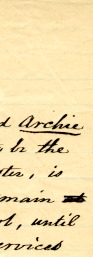 d Archie
, be the
ter, is
main at
ol, until
ervices